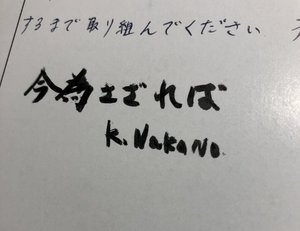 するまで取り組んでください
今為さざれば
K.NaKaNo.